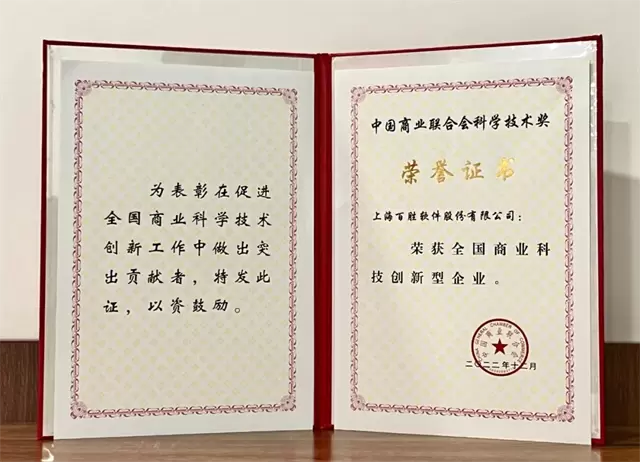 为表彰在促进
全国商业科学技术
创新工作中做出突
出贡献者，特发此
证，以资鼓励。
中国商业联合会科学技术奖
荣誉证书
上海百胜软件股份有限公司：
荣获全国商业科
技创新型企业。
CHINA GENERAL CHAMBER OF COMMERCE
中国商业联合会
二〇二二年十二月